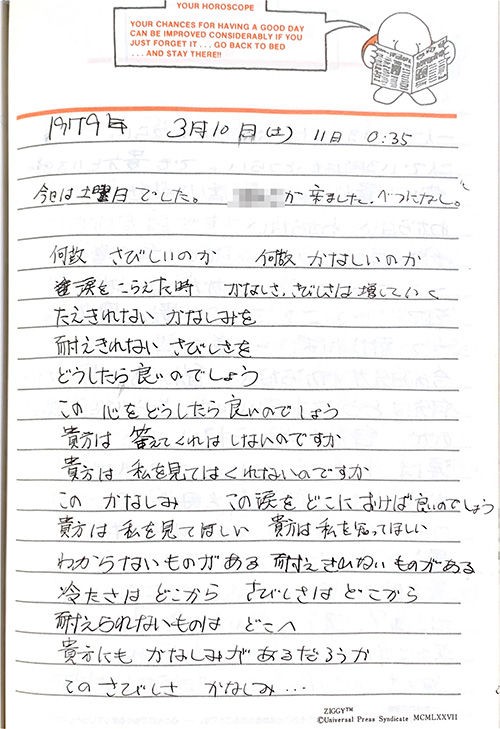 YOUR HOROSCOPE
YOUR CHANCES FOR HAVING A GOOD DAY
CAN BE IMPROVED CONSIDERABLY IF YOU
JUST FORGET IT . . . GO BACK TO BED
. . . AND STAY THERE!!
1979年 3月10日(土) 11日 0:35
今日は土曜日でした。 が来ました。べつになし。
何故 さびしいのか 何故 かなしいのか
涙をこらえた時 かなしさ、さびしさは増していく
たえきれない かなしみを
耐えきれない さびしさを
どうしたら良いのでしょう
この 心をどうしたら良いのでしょう
貴方は 答えてくれはしないのですか
貴方は 私を見てはくれないのですか
この かなしみ この涙を どこにおけば良いのでしょう
貴方は 私を見てほしい 貴方は私を思ってほしい
わからないものがある 耐えきれないものがある
冷たさは どこから さびしさは どこから
耐えられないものは どこへ
貴方にも かなしみがあるだろうか
このさびしさ かなしみ…
ZIGGY™
©Universal Press Syndicate MCMLXXVII